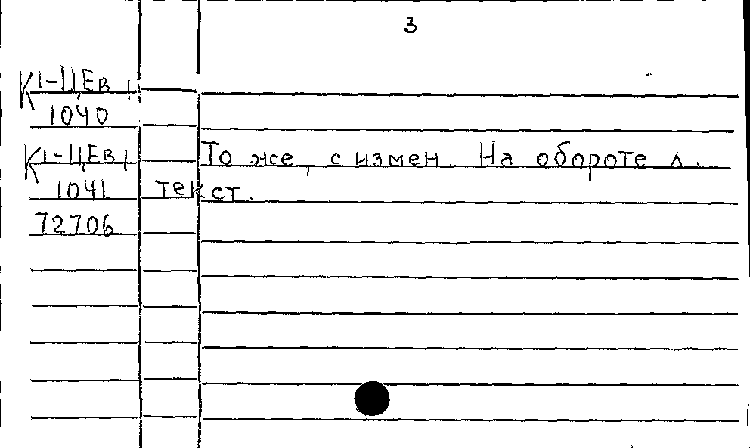 3
К1-ЦЕв
1040
К1-ЦЕв То же, с измен. На обороте л.
1041 текст.
72706